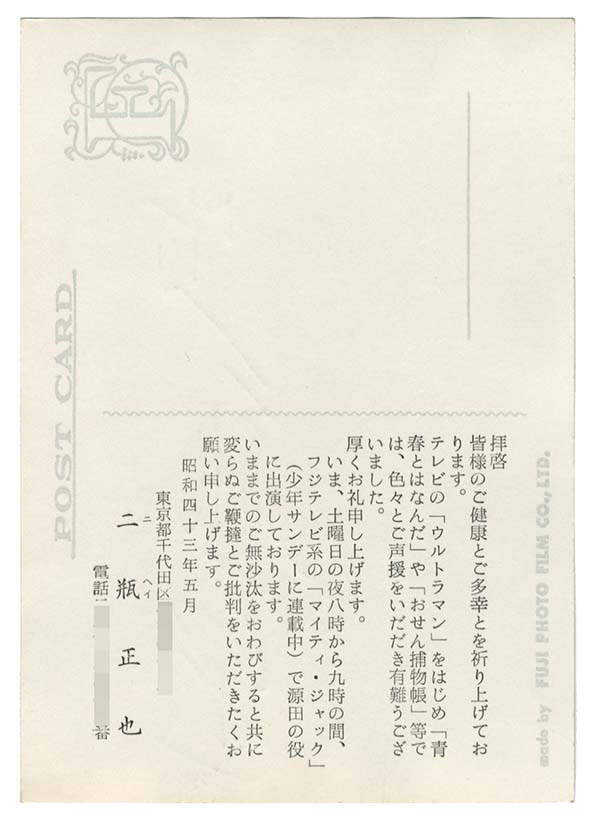 POST CARD
made by FUJI PHOTO FILM CO., LTD.
拝啓
皆様のご健康とご多幸とを祈り上げてお
ります。
テレビの「ウルトラマン」をはじめ「青
春とはなんだ」や「おせん捕物帳」等で
は、色々とご声援をいだだき有難うござ
いました。
厚くお礼申し上げます。
いま、土曜日の夜八時から九時の間、
フジテレビ系の「マイティ・ジャック」
(少年サンデーに連載中)で源田の役
に出演しております。
いままでのご無沙汰をおわびすると共に
変らぬご鞭撻とご批判をいただきたくお
願い申し上げます。
昭和四十三年五月
東京都千代田区
二瓶正也
ニヘイ
電話
番